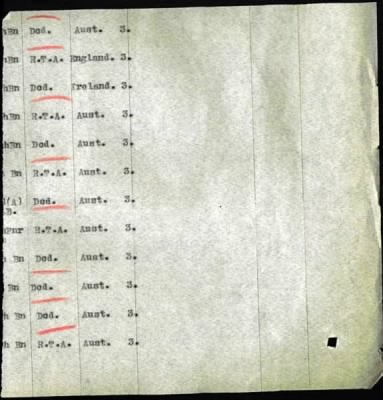 hBn Dcd. Aust. 3.
hBn R.T.A. England. 3.
hBn Dcd. Ireland. 3.
hBn R.T.A. Aust. 3.
hBn Dcd. Aust. 3.
Bn R.T.A. Aust. 3.
(A) Dcd. Aust. 3.
.B.
Pnr R.T.A. Aust. 3.
h Bn Dcd. Aust. 3.
Bn Dcd. Aust. 3.
h Bn Dcd. Aust. 3.
h Bn R.T.A. Aust. 3.